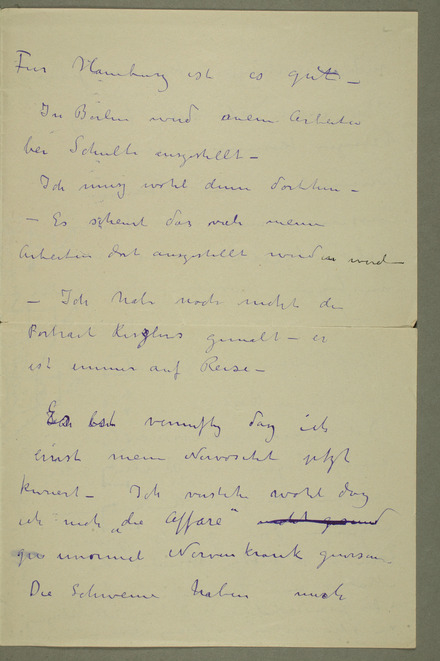 Fur Hamburg ist es gut —
In Berlin wird meine Arbeiten
bei Schulte ausgestellt —
Ich muss wohl dann dorthin —
— Es scheint das viele meine
Arbeiten dort ausgestellt werden werde
— Ich habe noch nicht die
Portrait Kesslers gemalt — er
ist immer auf Reise —
Es ist vernuftig dass ich
meine Nervositet jetzt
kuriert — Ich verstehe wohl dass
ich nach „die Affäre"
Nervenkrank gewesen
Die Schweine haben mich